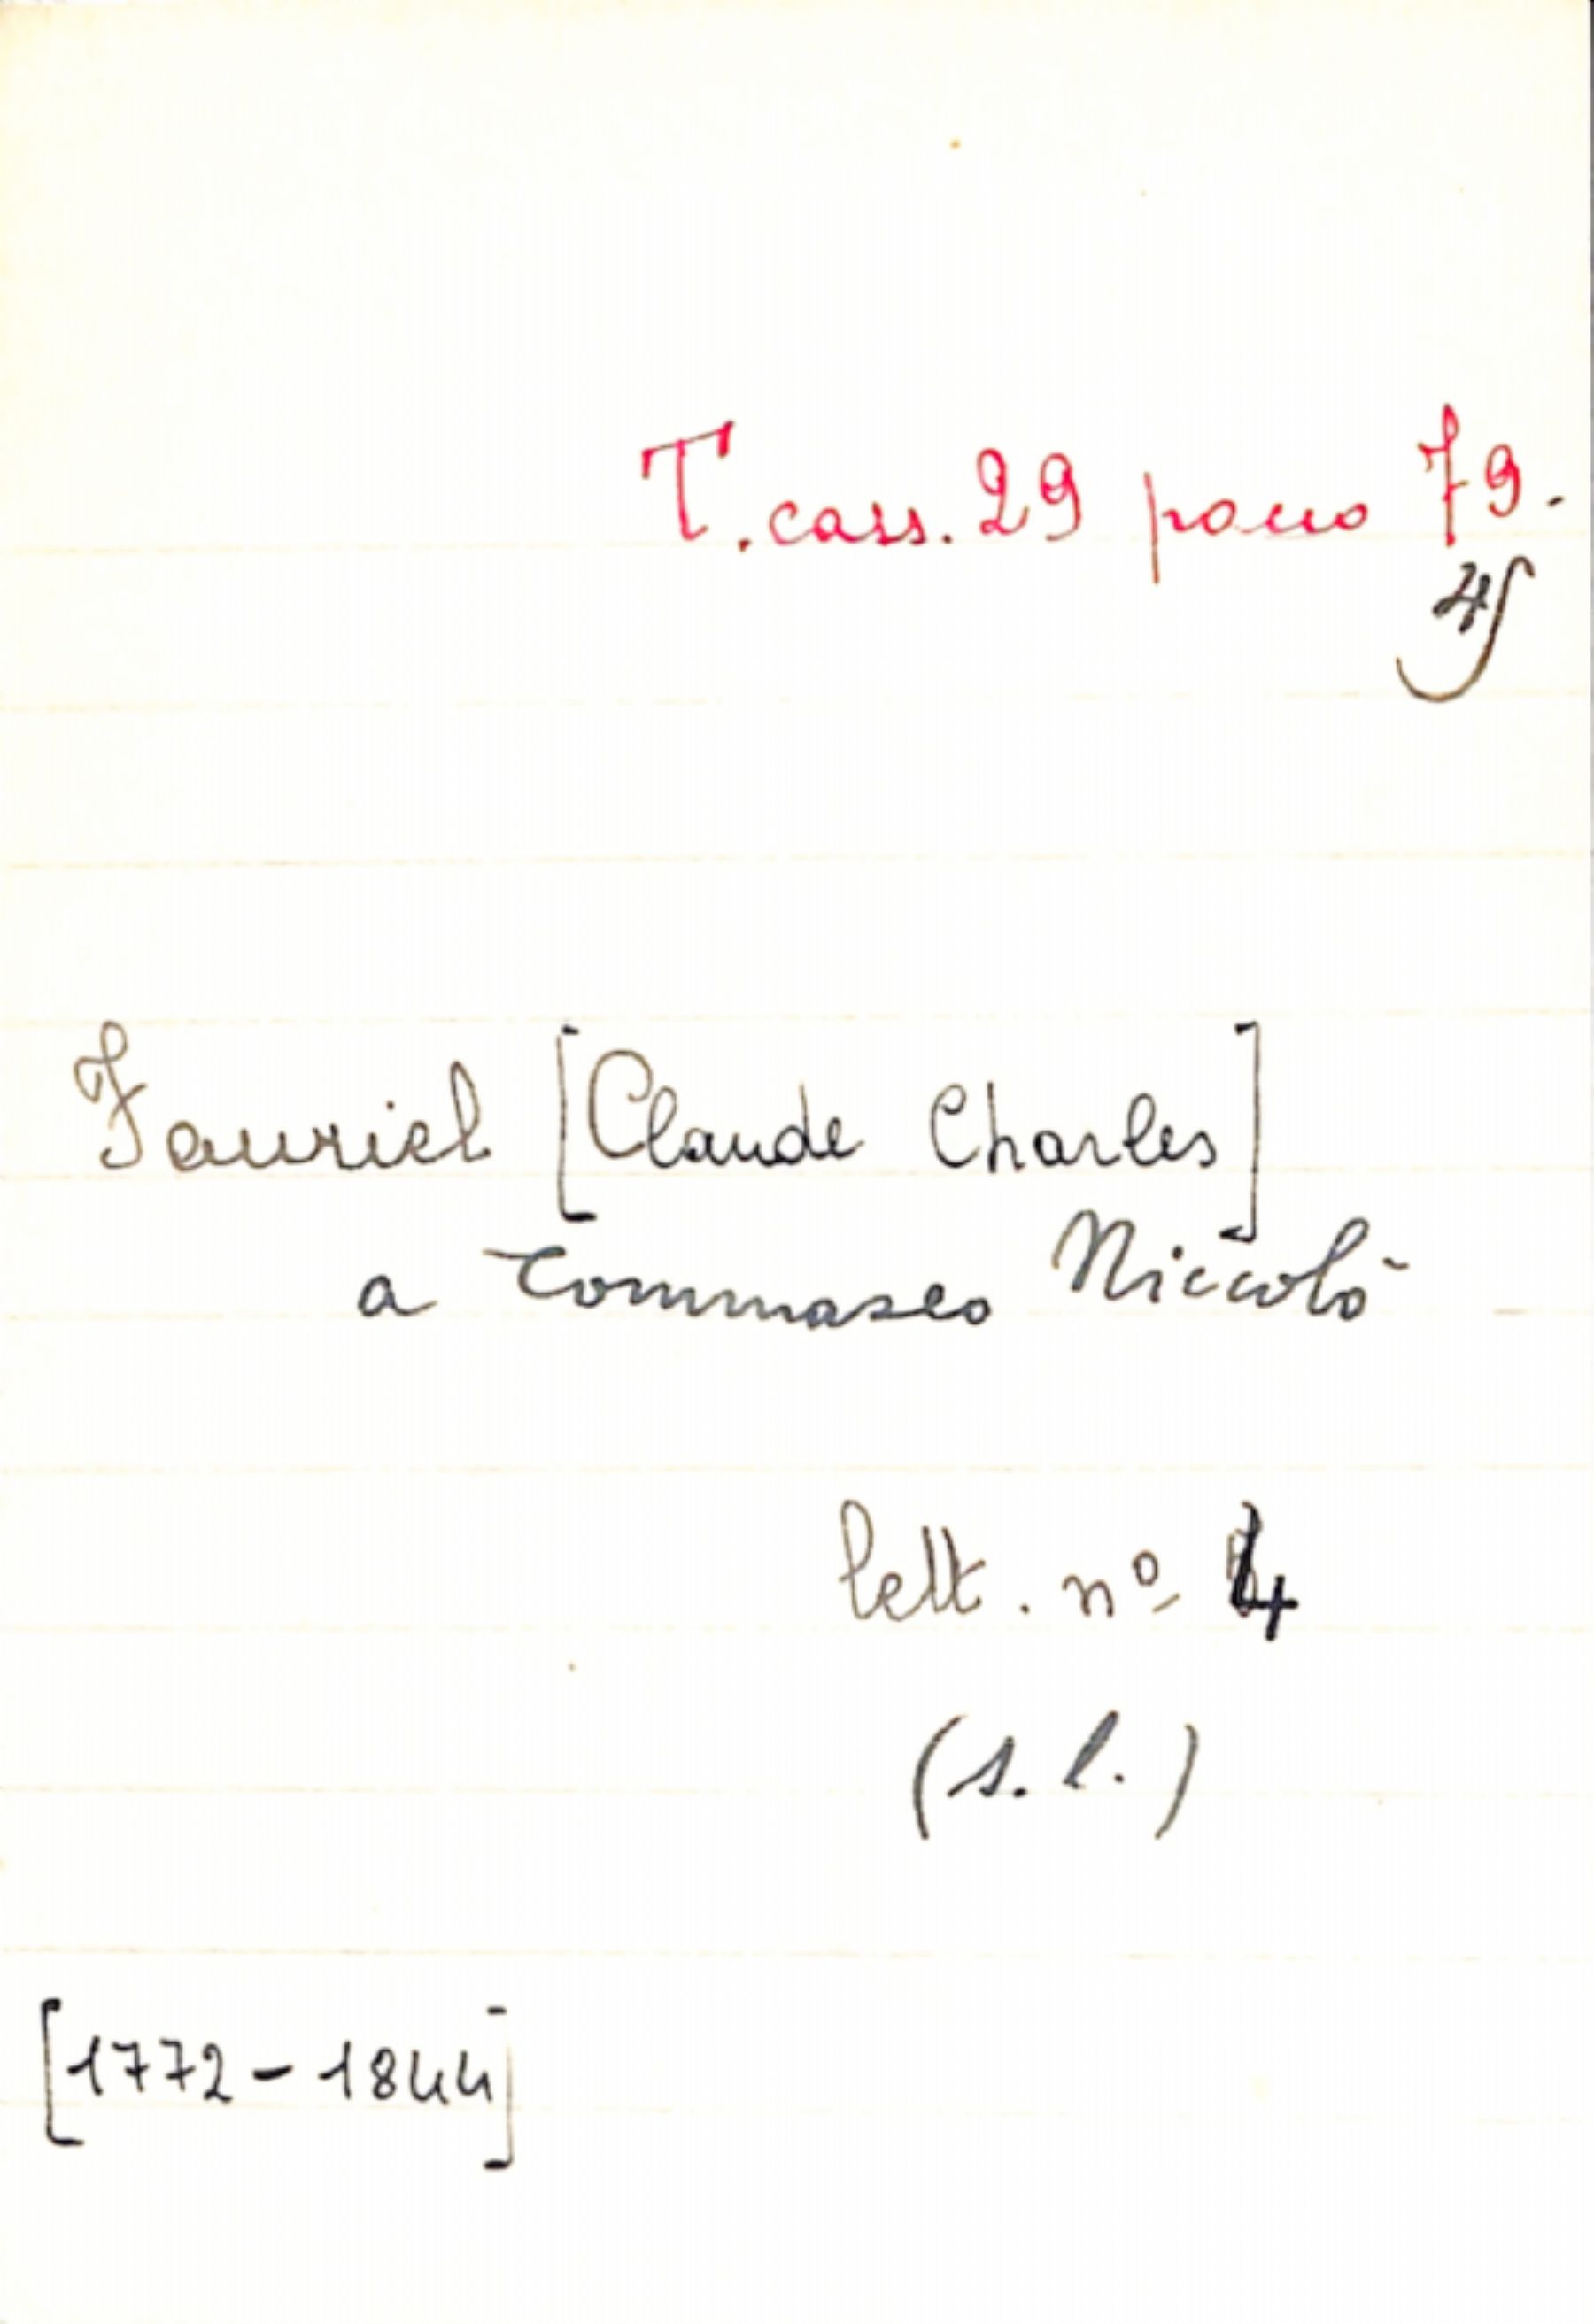 T. cass. 29 panno 79.
4
Fauriel [Claude Charles]
a Tommaseo Niccolò
lett. nº 4
(s. l.)
[1772 - 1844]